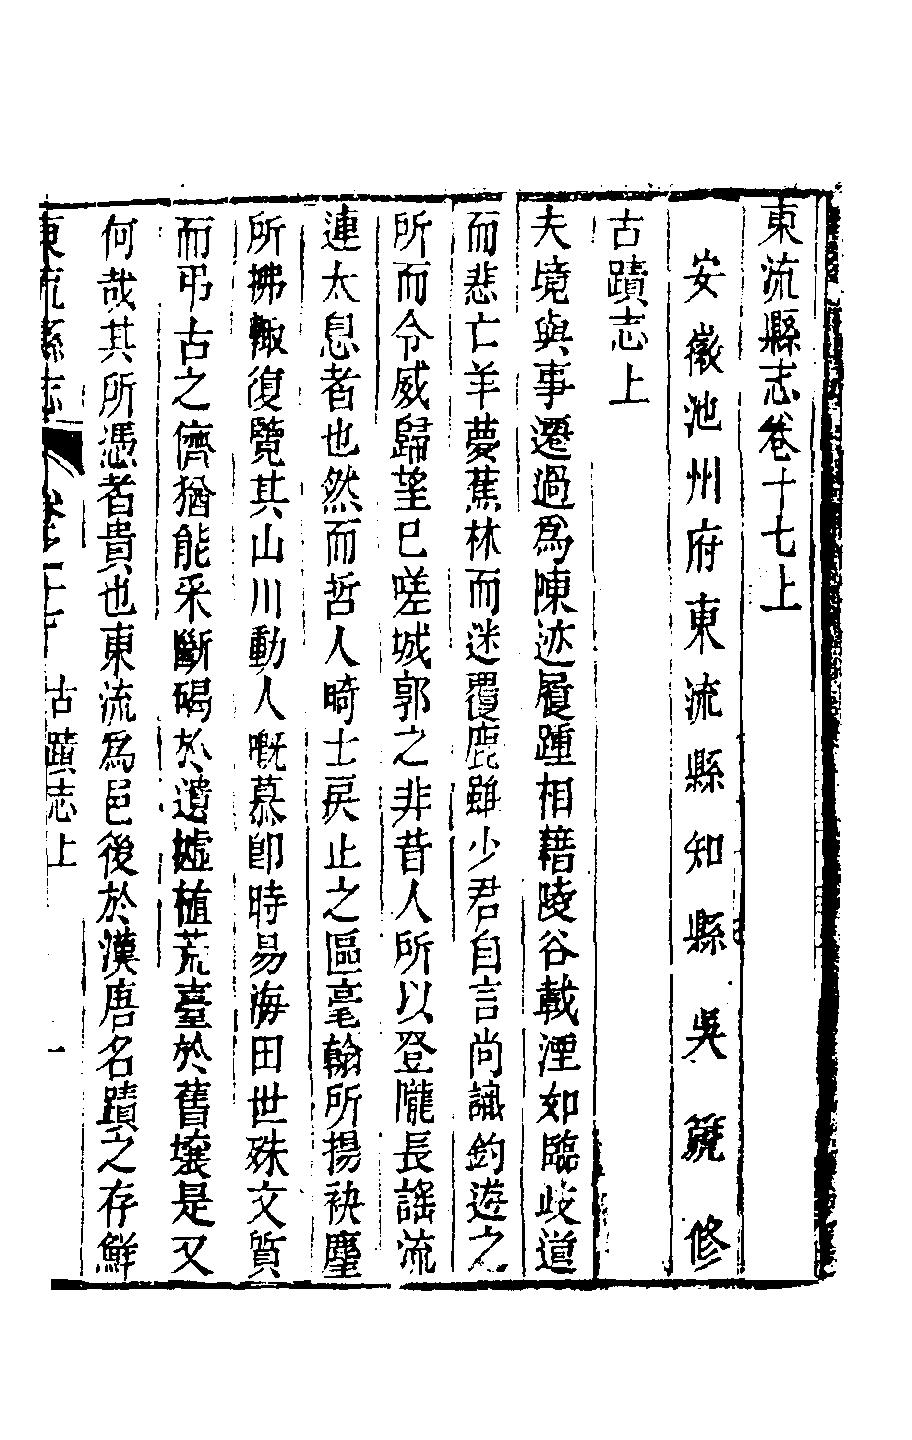 東流縣志卷十七上
安徽池州府東流縣知縣吳箎修
古蹟志上
夫境與事遷過為陳迹履踵相藉陵谷載湮如臨歧道
而悲亡羊夢蕉林而迷覆鹿雖少君自言尚識釣遊之
所而令威歸望已嗟城郭之非昔人所以登隴長謠流
連太息者也然而哲人畸士戾止之區毫翰所揚袂塵
所拂輙復覽其山川動人慨慕卽時易海田世殊文質
而弔古之儕猶能采斷碣於遺墟植荒臺於舊壤是又
何哉其所憑者貴也東流為邑後於漢唐名蹟之存鮮
東流縣志 卷十七 古蹟志上 一